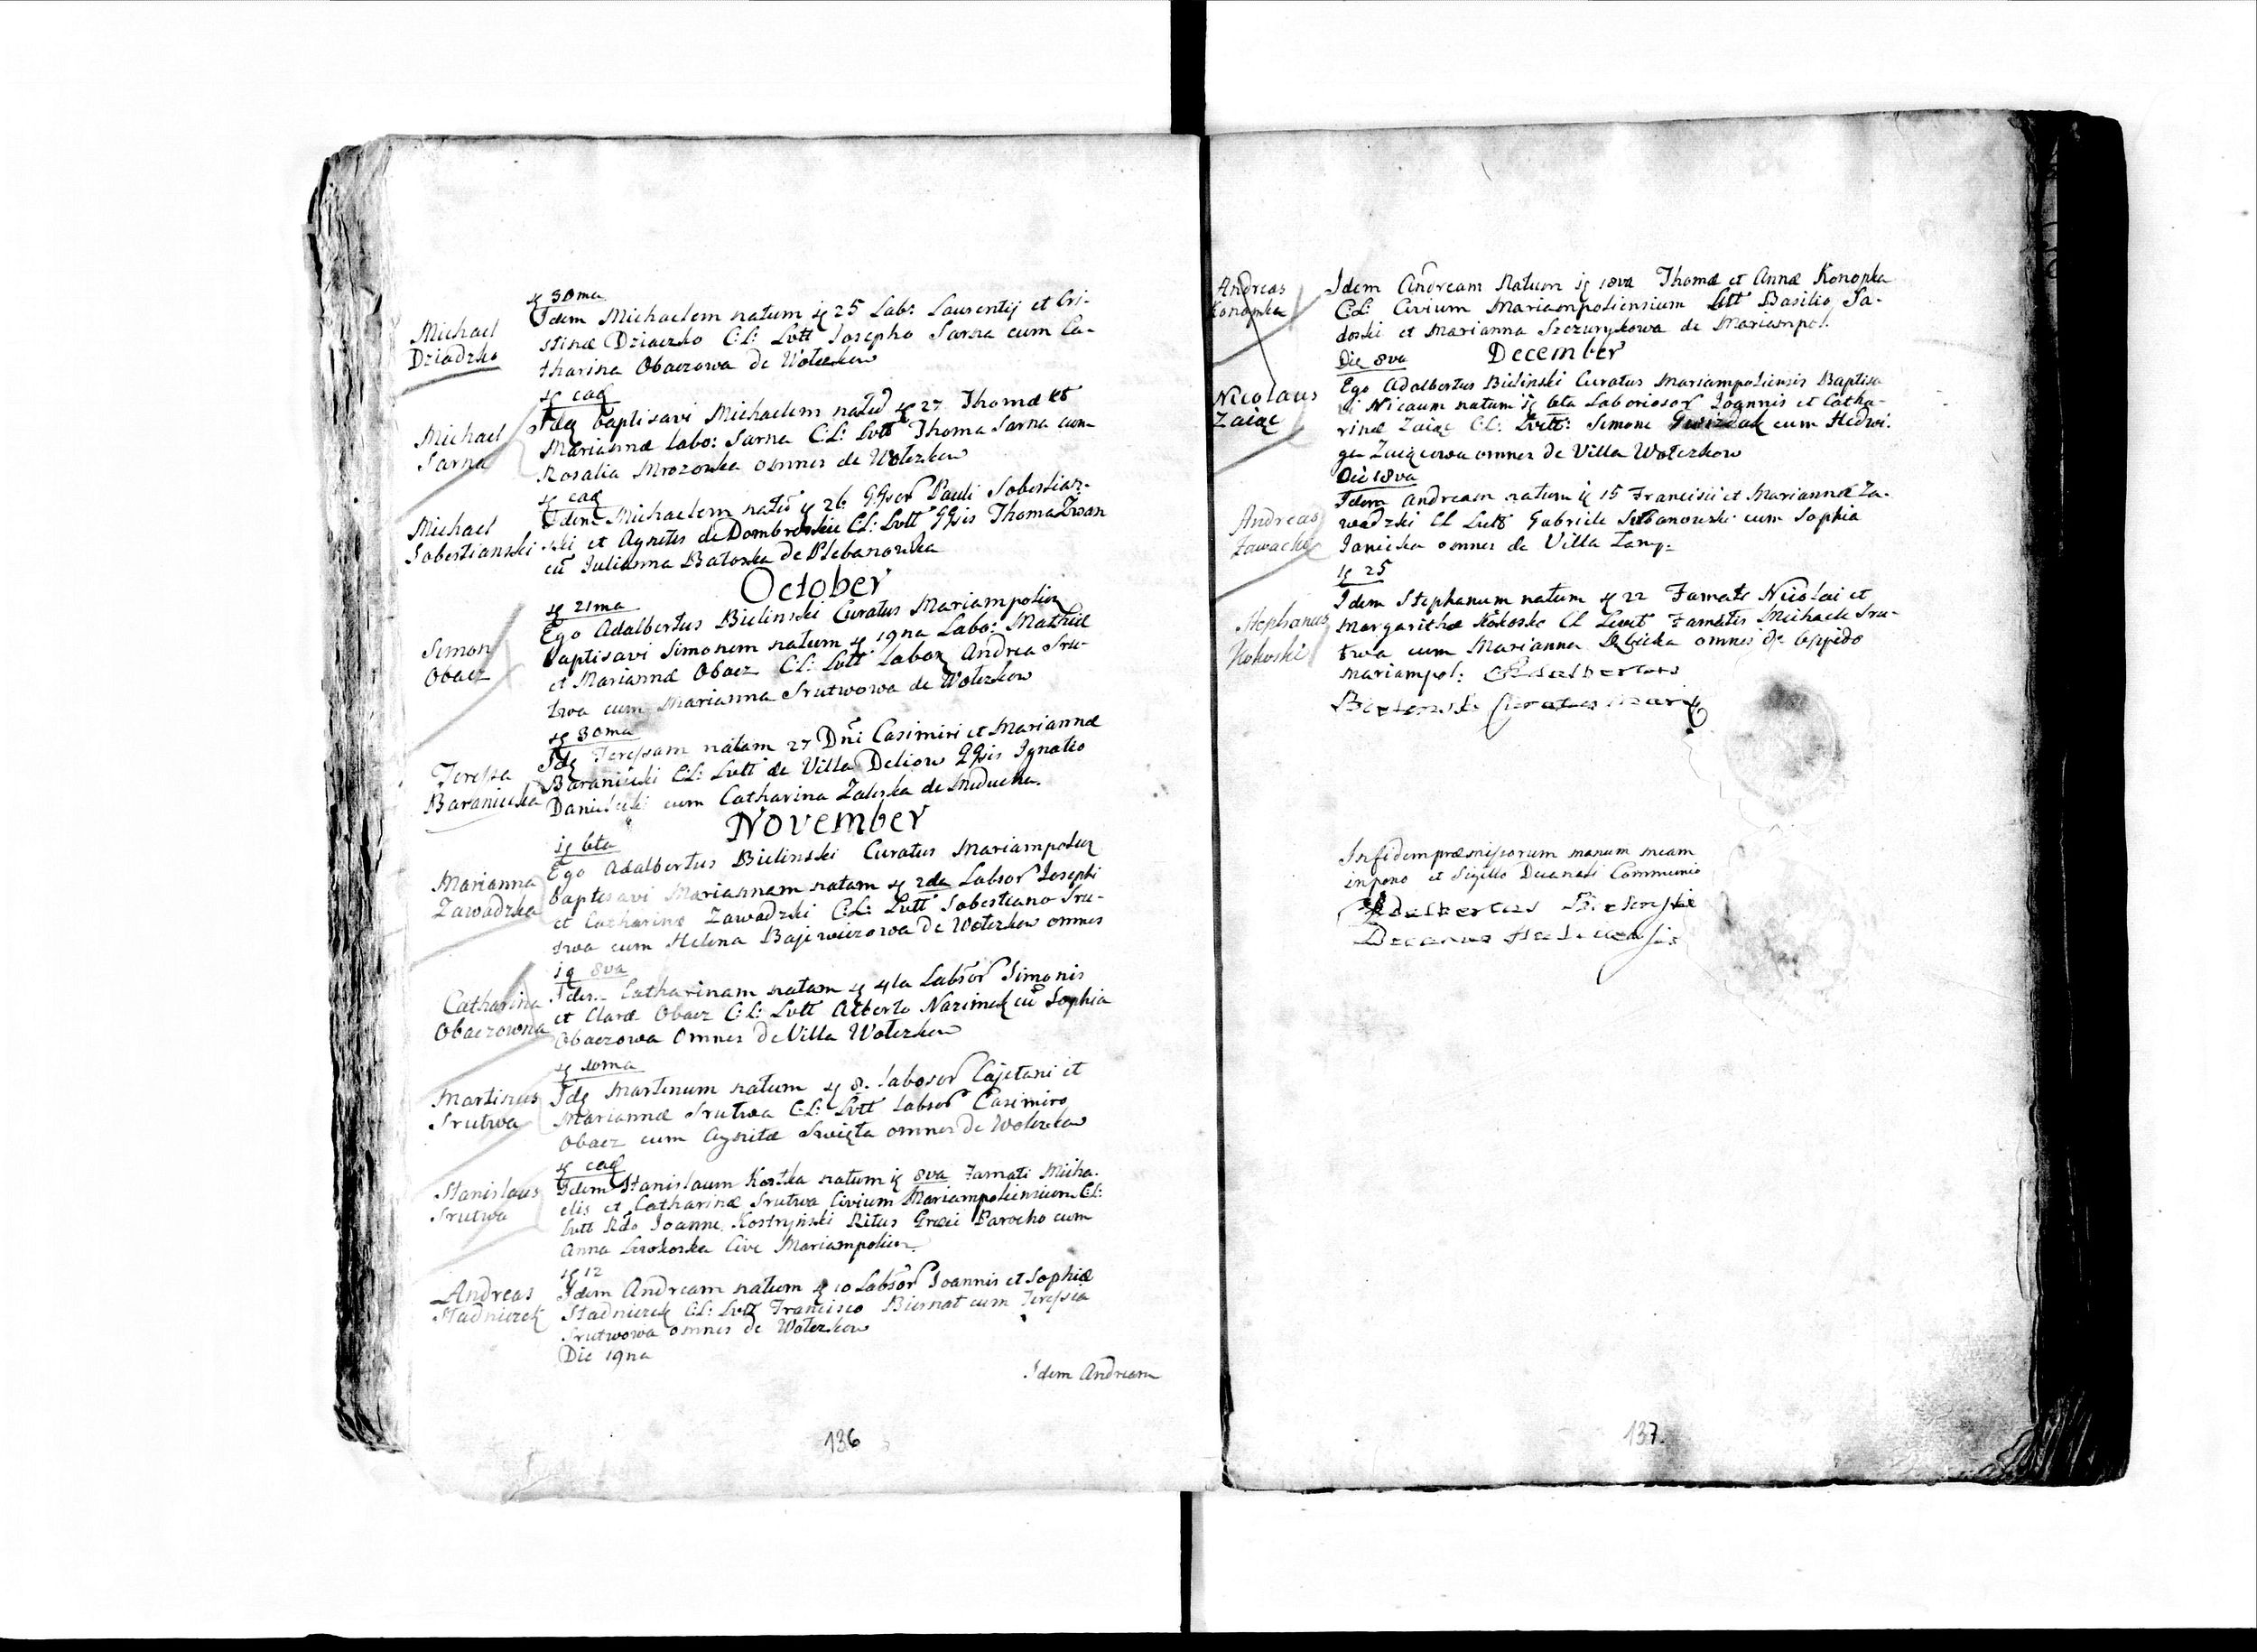 30ma
Michael Dziadzko
Idem Michaelem natum 25 Lab: Laurentij et Cri-
stinæ Dziaczko C:L: Lvtt Josepho Sarna cum Ca-
tharina Obaczowa de Wołczkow
Michael Sarna
Baptisavi Michaelem 27 Thomæ et
Mariannæ Labo: Sarna C:L: Lvtt Thoma Sarna cum
Rosalia Mrozowka omnes de Wołczkow
Michael Sobestianski
Idem Michaelem 26 Pauli Sobestian-
ski et Agnetis de Dombrowskie C:L: Lvtt Thoma Iwan
cū Julianna Batoska de Plebanowka
October
21ma
Simon Obacz
Ego Adalbertus Bielinski Curatus Mariampolien
Baptisavi Simonem natum 19na Labo: Mathiæ
et Mariannæ Obacz C:L: Lvtt Labor Andrea Sru-
twa cum Marianna Srutwowa de Wołczkow
30ma
Teressa Baraniecka
Teressam natam 27 Dni Casimiri et Mariannæ
Baraniecki C:L: Lvtt de Villa Deliow Ignatio
cum Catharina Zaleska de Meducha.
November
6ta
Marianna Zawadzka
Ego Adalbertus Bielinski Curatus Mariampolien
baptisavi Mariannam natam 2da Labor Josephi
et Catharinæ Zawadzki C:L: Lvtt Sobestiano Sru-
twa cum Helena Bajewiczowa de Wołczkow omnes
8va
Catharina Obaczowna
Idem Catharinam natam 4ta Labor Simonis
et Claræ Obacz C:L: Lvtt Alberto Nazimek cū Sophia
Obaczowa Omnes de Villa Wołczkow
10ma
Martinus Srutwa
Martinum natum 8. Labosor Cajetani et
Mariannæ Srutwa C:L: Lvtt Labsor Casimiro
Obacz cum Agnita Swięta omnes de Wołczkow
Stanislaus Srutwa
Idem Stanislaum Kostka natum 8va Famati Micha-
elis et Catharinæ Srutwa Civium Mariampoliensium C:L:
Lvtt Rdo Joanne Kostryński Ritus Græci Parocho cum
Anna Cive Mariampolien.
12
Andreas Stadniczek
Idem Andream natum 10 Labsor Joannis et Sophiæ
Stadniczek C:L: Lvtt Francisco Biernat cum Teressia
Srutwowa omnes de Wołczkow
Die 19na
Idem Andream
136
Andreas Konopka
Idem Andream Natum 18va Thomæ et Annæ Konopka
C:L: Civium Mariampoliensium Lvtt Basilio Sa-
doski et Marianna Szczurykowa de Mariampol.
Die 8va December
Nicolaus Zaiąc
Ego Adalbertus Bielinski Curatus Mariampoliensis Baptisa
vi Nicaum natum 6ta Laboriosor Joannis et Catha-
rinæ Zaiąc C:L: Lvtt: Simone Gwizdak cum Hedwi-
ga Zaiącowa omnes de Villa Wołczkow
Die 18va
Andreas Zawacki
Idem Andream natum 15 Francisii et Mariannæ Za-
wadzki CL Lvtt Gabriele Sobanowski cum Sophia
Janicka omnes de Villa
25
Stephanus Kokoski
Idem Stephanum natum 22 Famati Nicolai et
Margarithæ Kokoski CL Levt Famatis Michaele Sru-
twa cum Marianna omnes de Oppido
Mariampol: Adalbertus
Bielinski Curatus Mari
In fidem præmissorum manum meam
inpono et Sigillo Decanali Communio
Adalbertus Bielenski
Decanus Haliciensis
137.